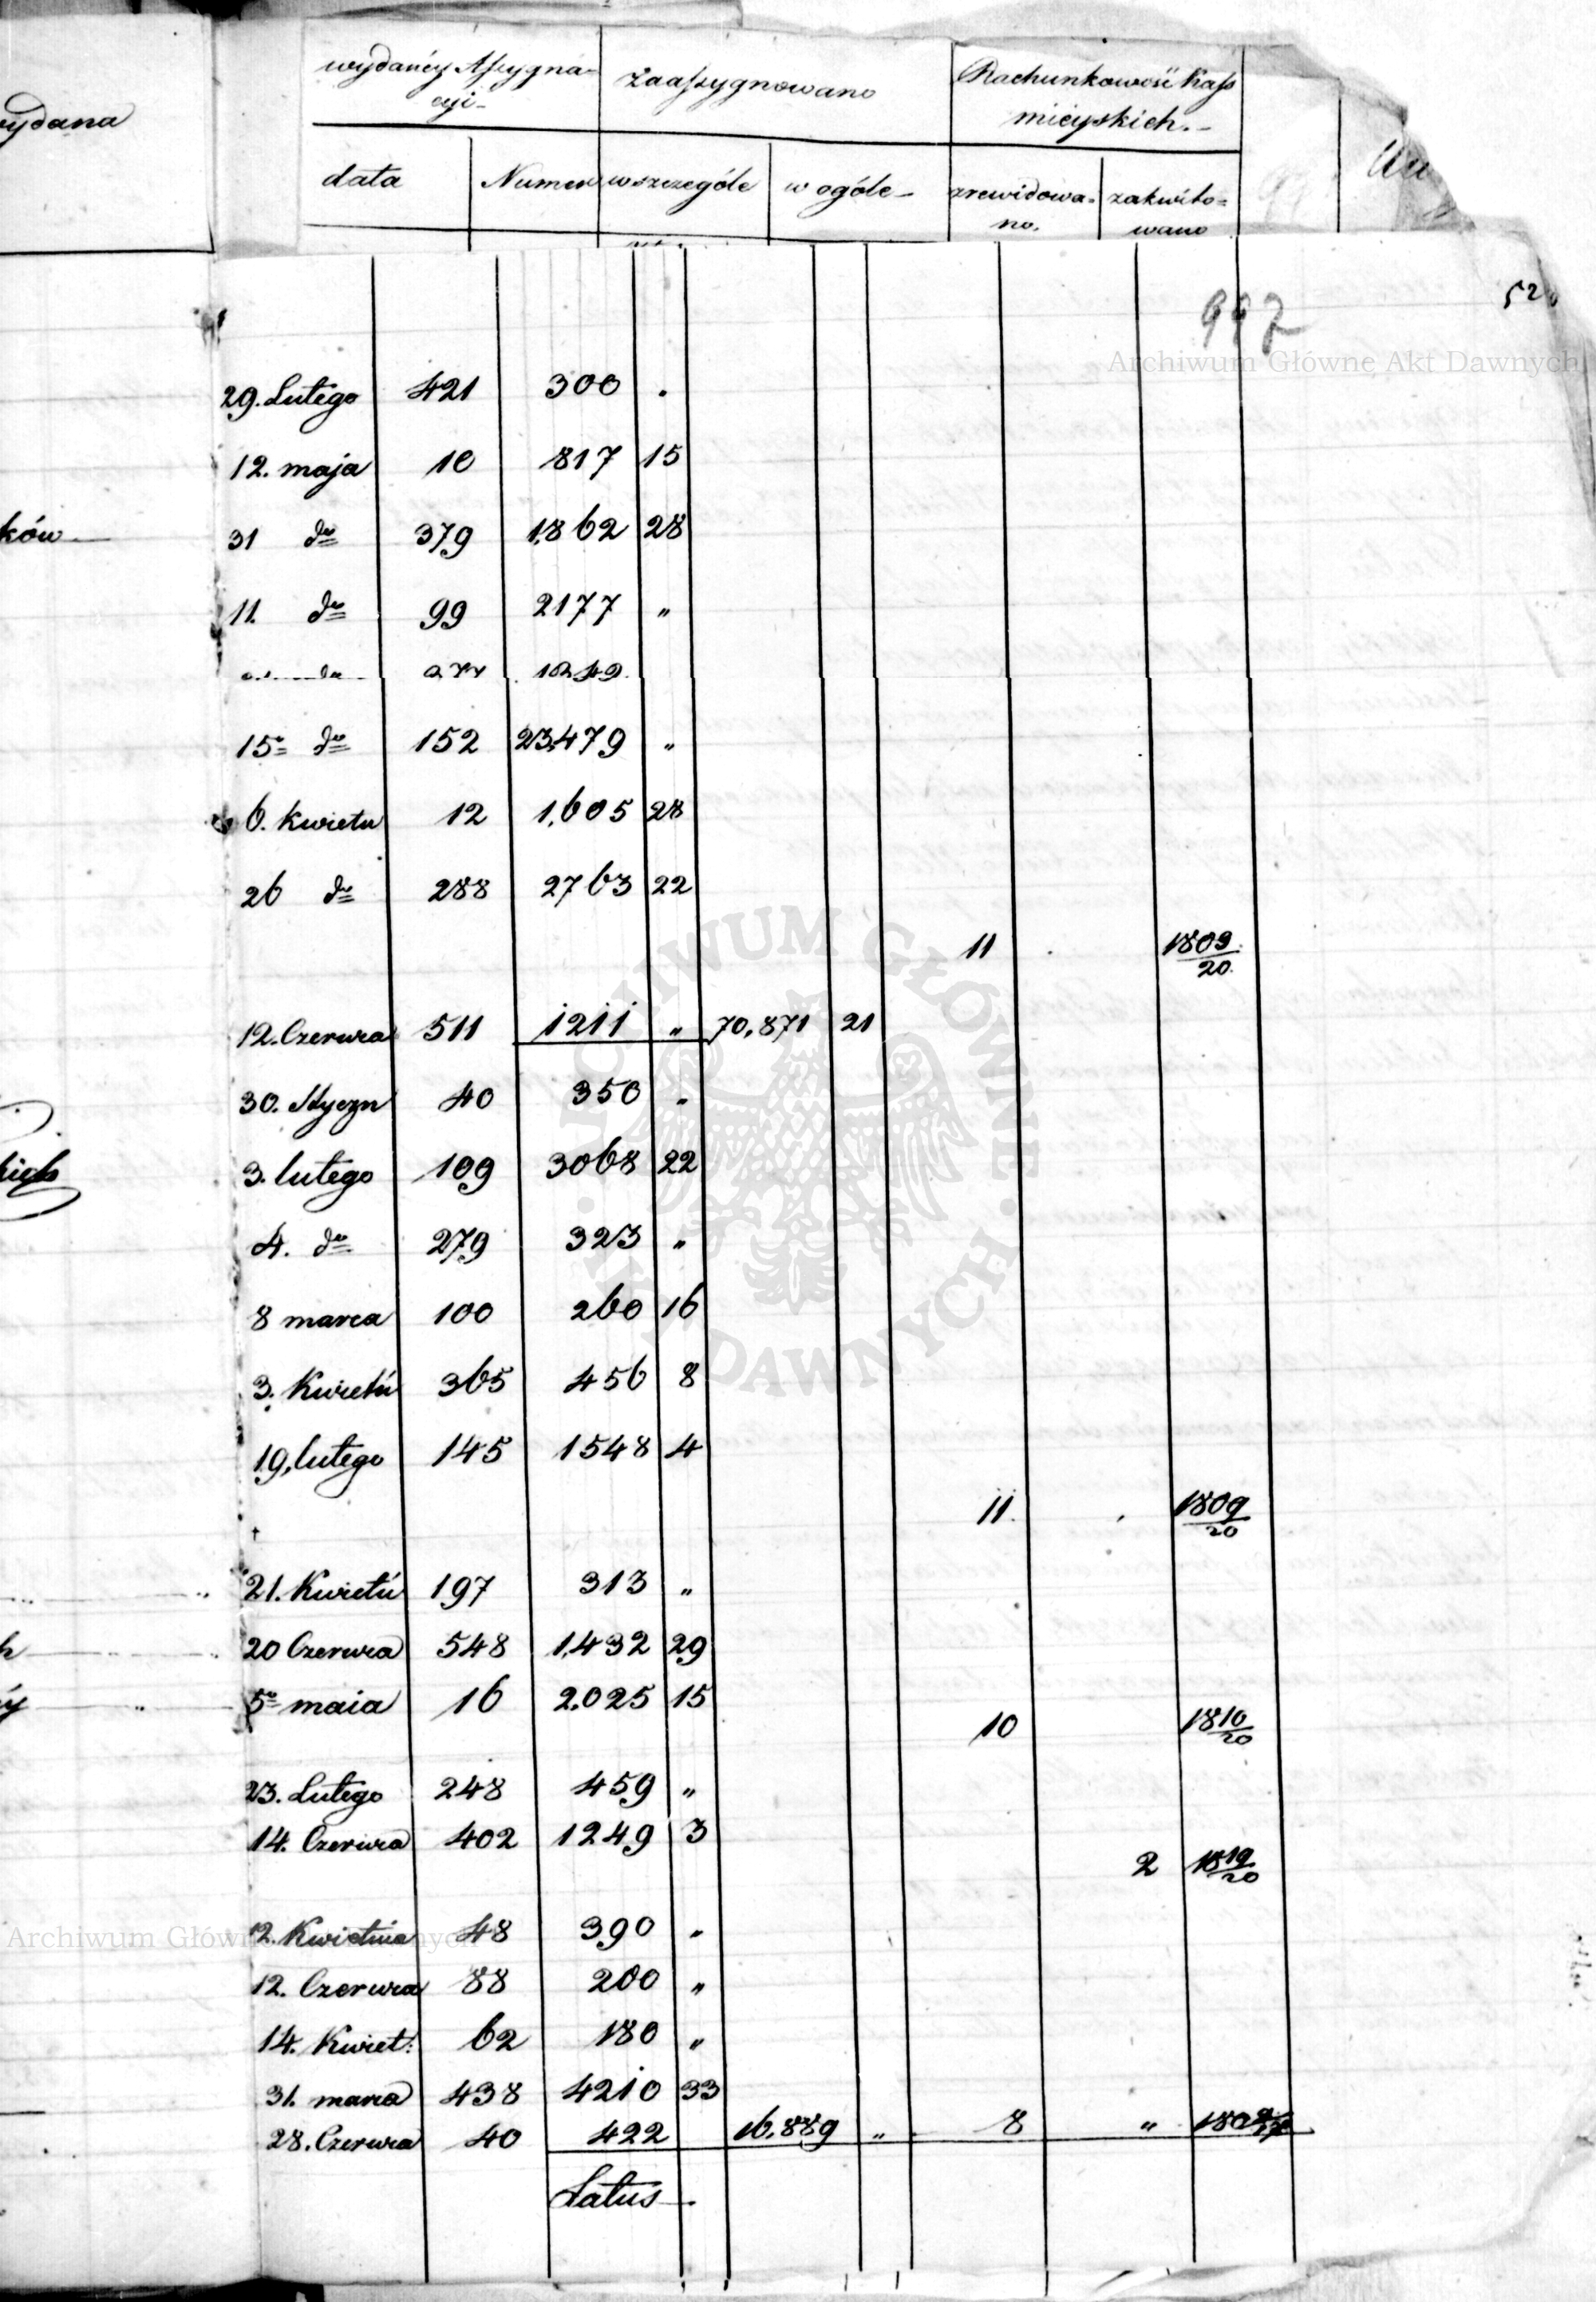 wydanéy Assygna-
cyi-
Zaassygnowano
Rachunkowość Kass
mieyskich.-
wydana
data
Numer
wszczególe
w ogóle-
zrewidowa-
no.
zakwito-
wano
997
52
Archiwum Główne Akt Dawnych
29. Lutego 421 300 .
12. maja 10 817 15
ków
31 do 379 1862 28
11. do 99 2177 "
do 1249
15 do 152 23479 "
6. Kwietn 12 1,605 28
26 do 288 2763 22
11 . 1809/20.
12. Czerwca 511 1211 " 70,871 21
30. Styczn 40 350 "
3. lutego 109 3068 22
4. do 279 323 "
8 marca 100 260 16
3. Kwietń 365 456 8
19. lutego 145 1548 4
11. . 1809/20
21. Kwietń 197 313 "
20 Czerwca 548 1,432 29
5 maia 16 2.025 15
10 1810/20
23. Lutego 248 459 "
14. Czerwca 402 1249 3
2 1819/20
12. Kwietnia 48 390 "
12. Czerwca 88 200 "
14. Kwiet: 62 180 "
31. marca 438 4210 33
28. Czerwca 40 422 16,889 " 8 "
Latus
ARCHIWUM GŁÓWNE AKT DAWNYCH
Archiwum Główne Akt Dawnych